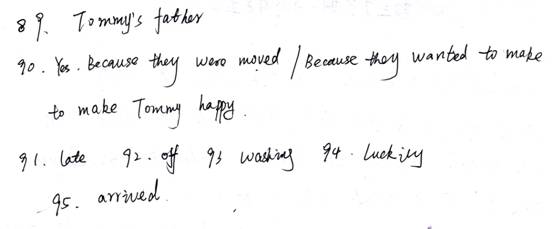 89. Tommy's father
90. Yes. Because they were moved / Because they wanted to make
to make Tommy happy.
91. late 92. off 93 washing 94. Luckily
95. arrived.